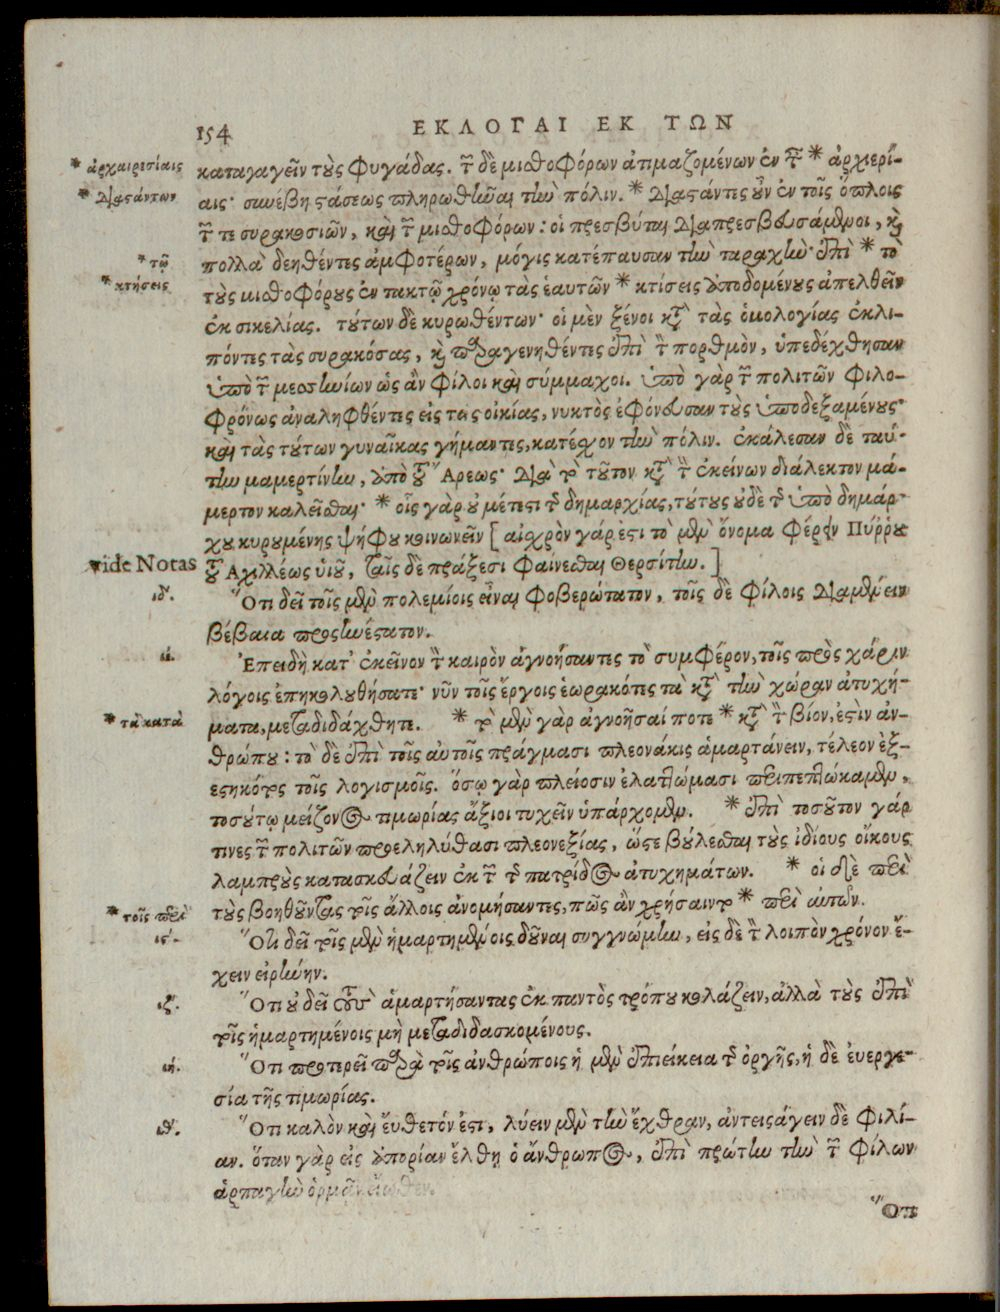 154 ΕΚΛΟΓΑΙ ΕΚ ΤΩΝ
* ἀρχαιρεσίαις
καταγαγεῖν τοὺς φυγάδας. τῶν δὲ μισθοφόρων ἀτιμαζομένων ἐν ταῖς * ἀρχιερί-
* διαστάντων
αις· συνέβη στάσεως πληρωθῆναι τὴν πόλιν. * διαστάντες οὖν ἐν τοῖς ὅπλοις
τῶν τε συρακοσιῶν, καὶ τῶν μισθοφόρων: οἱ πρεσβύται διαπρεσβευσάμενοι, καὶ
* τῷ
πολλὰ δεηθέντες ἀμφοτέρων, μόγις κατέπαυσαν τὴν ταραχὴν· ἐπὶ * τὸ
* κτήσεις
τοὺς μισθοφόρους ἐν τακτῷ χρόνῳ τὰς ἑαυτῶν * κτίσεις ἀποδομένους ἀπελθεῖν
ἐκ σικελίας. τούτων δὲ κυρωθέντων· οἱ μὲν ξένοι κατὰ τὰς ὁμολογίας ἐκλι-
πόντες τὰς συρακόσας, καὶ παραγενηθέντες ἐπὶ τὸν πορθμὸν, ὑπεδέχθησαν
ὑπὸ τῶν μεσηνίων ὡς ἂν φίλοι καὶ σύμμαχοι. ὑπὸ γὰρ τῶν πολιτῶν φιλο-
φρόνως ἀναληφθέντες εἰς τὰς οἰκίας, νυκτὸς ἐφόνευσαν τοὺς ὑποδεξαμένους·
καὶ τὰς τούτων γυναῖκας γήμαντες, κατέχον τὴν πόλιν. ἐκάλεσαν δὲ ταύ-
την μαμερτίνην, ἀπὸ τοῦ Ἄρεως· διὰ τὸ τοῦτον κατὰ τὴν ἐκείνων διάλεκτον μά-
μερτον καλεῖσθαι· * οἷς γὰρ οὐ μέτεστι τῆς δημαρχίας, τούτους οὐδὲ τῆς ὑπὸ δημάρ-
χου κυρουμένης ψήφου κοινωνεῖν [ αἰχρὸν γάρ ἐστι τὸ μὲν ὄνομα φέρειν Πύῤῥου
vide Notas
τοῦ Αχιλλέως υἱοῦ, ταῖς δὲ πράξεσι φαίνεσθαι Θερσίτην. ]
ιδ´.
Ὅτι δεῖ τοῖς μὲν πολεμίοις εἶναι φοβερώτατον, τοῖς δὲ φίλοις διαμένειν
βέβαια προσηνέστατον.
ιέ.
Ἐπειδὴ κατ' ἐκεῖνον τὸν καιρὸν ἀγνοήσαντες τὸ συμφέρον, τοῖς πρὸς χάριν
λόγοις ἐπηκολουθήσατε· νῦν τοῖς ἔργοις ἑωρακότες τὰ κατὰ τὴν χώραν ἀτυχή-
* τὰ κατὰ
ματα, μεταδιδάχθητε. * τὸ μὲν γὰρ ἀγνοῆσαί ποτε * κατὰ τὸν βίον, ἐστὶν ἀν-
θρώπου: τὸ δὲ ἐπὶ τοῖς αὐτοῖς πράγμασι πλεονάκις ἁμαρτάνειν, τέλεον ἐξ-
εστηκότος τοῖς λογισμοῖς. ὅσῳ γὰρ πλείοσιν ἐλαττώμασι περιπεπτώκαμεν,
τοσούτῳ μείζονος τιμωρίας ἄξιοι τυχεῖν ὑπάρχομεν. * ἐπὶ τοσοῦτον γάρ
τινες τῶν πολιτῶν προεληλύθασι πλεονεξίας, ὥστε βούλεσθαι τοὺς ἰδίους οἴκους
λαμπροὺς κατασκευάζειν ἐκ τῶν τῆς πατρίδος ἀτυχημάτων. * οἱ δὲ περὶ
* τοῖς περὶ
τοὺς βοηθοῦντας τοῖς ἄλλοις ἀνομήσαντες, πῶς ἂν χρήσαιντο * περὶ αὐτῶν.
ιστ´.
Ὅτι δεῖ τοῖς μὲν ἡμαρτημένοις δοῦναι συγγνώμην, εἰς δὲ τὸν λοιπὸν χρόνον ἔ-
χειν εἰρήνην.
ιζ.
Ὅτι οὐ δεῖ τοὺς ἁμαρτήσαντας ἐκ παντὸς τρόπου κολάζειν, ἀλλὰ τοὺς ἐπὶ
τοῖς ἡμαρτημένοις μὴ μεταδιδασκομένους.
ιή.
Ὅτι προτερεῖ παρὰ τοῖς ἀνθρώποις ἡ μὲν ἐπιείκεια τῆς ὀργῆς, ἡ δὲ ἐυεργε-
σία τῆς τιμωρίας.
ιθ´.
Ὅτι καλὸν καὶ ἔυθετόν ἐστι, λύειν μὲν τὴν ἔχθραν, ἀντεισάγειν δὲ φιλί-
αν. ὅταν γὰρ εἰς ἀπορίαν ἔλθῃ ὁ ἄνθρωπος, ἐπὶ πρώτην τὴν τῶν φίλων
ἁρπαγὴν ὁρμᾶν εἴωθεν.
Ὅτι